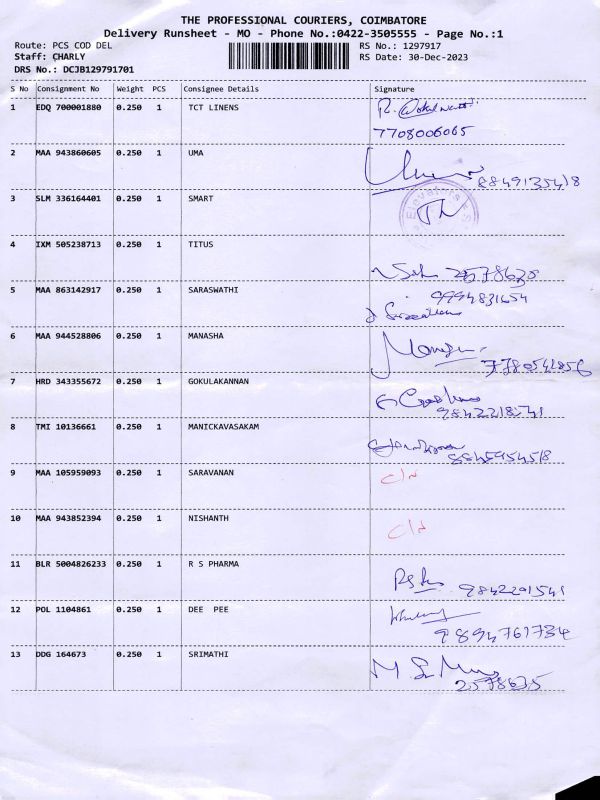 THE PROFESSIONAL COURIERS, COIMBATORE
Delivery Runsheet - MO - Phone No.:0422-3505555 - Page No.:1
Route: PCS COD DEL
RS No.: 1297917
Staff: CHARLY
RS Date: 30-Dec-2023
DRS No.: DCJB129791701
S No Consignment No Weight PCS Consignee Details Signature
1 EDQ 700001880 0.250 1 TCT LINENS
7708006065
2 MAA 943860605 0.250 1 UMA
3 SLM 336164401 0.250 1 SMART
4 IXM 505238713 0.250 1 TITUS
5 MAA 863142917 0.250 1 SARASWATHI
9994831654
6 MAA 944528806 0.250 1 MANASHA
7 HRD 343355672 0.250 1 GOKULAKANNAN
9842218541
8 TMI 10136661 0.250 1 MANICKAVASAKAM
9 MAA 105959093 0.250 1 SARAVANAN
10 MAA 943852394 0.250 1 NISHANTH
11 BLR 5004826233 0.250 1 R S PHARMA
9842291541
12 POL 1104861 0.250 1 DEE PEE
9894761734
13 DDG 164673 0.250 1 SRIMATHI
2578635